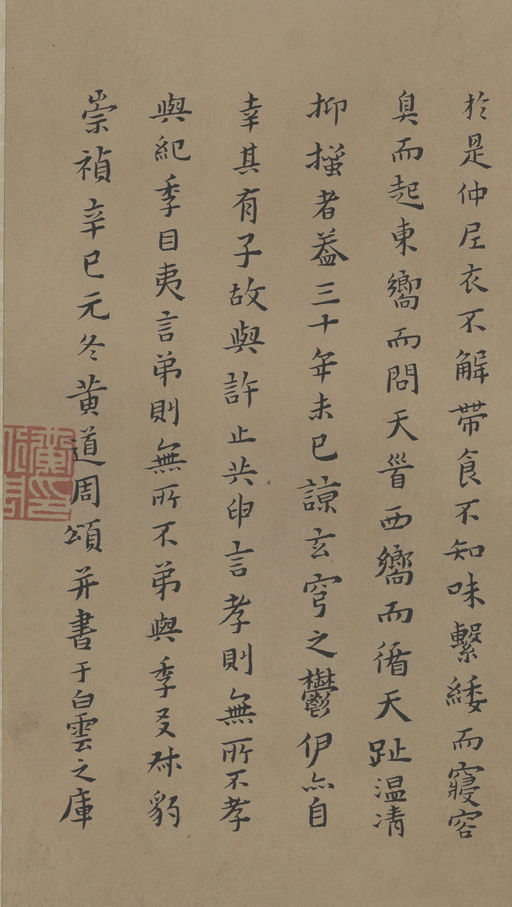 於是仲尼衣不解帶食不知味繫緌而寢容
臭而起東嚮而問天眥西嚮而循天趾温凊
抑搔者蓋三十年未已諒玄穹之鬱伊亦自
幸其有子故與許止共申言孝則無所不孝
與紀季目夷言弟則無所不弟與季友叔豹
崇禎辛巳元冬黄道周頌并書于白雲之庫